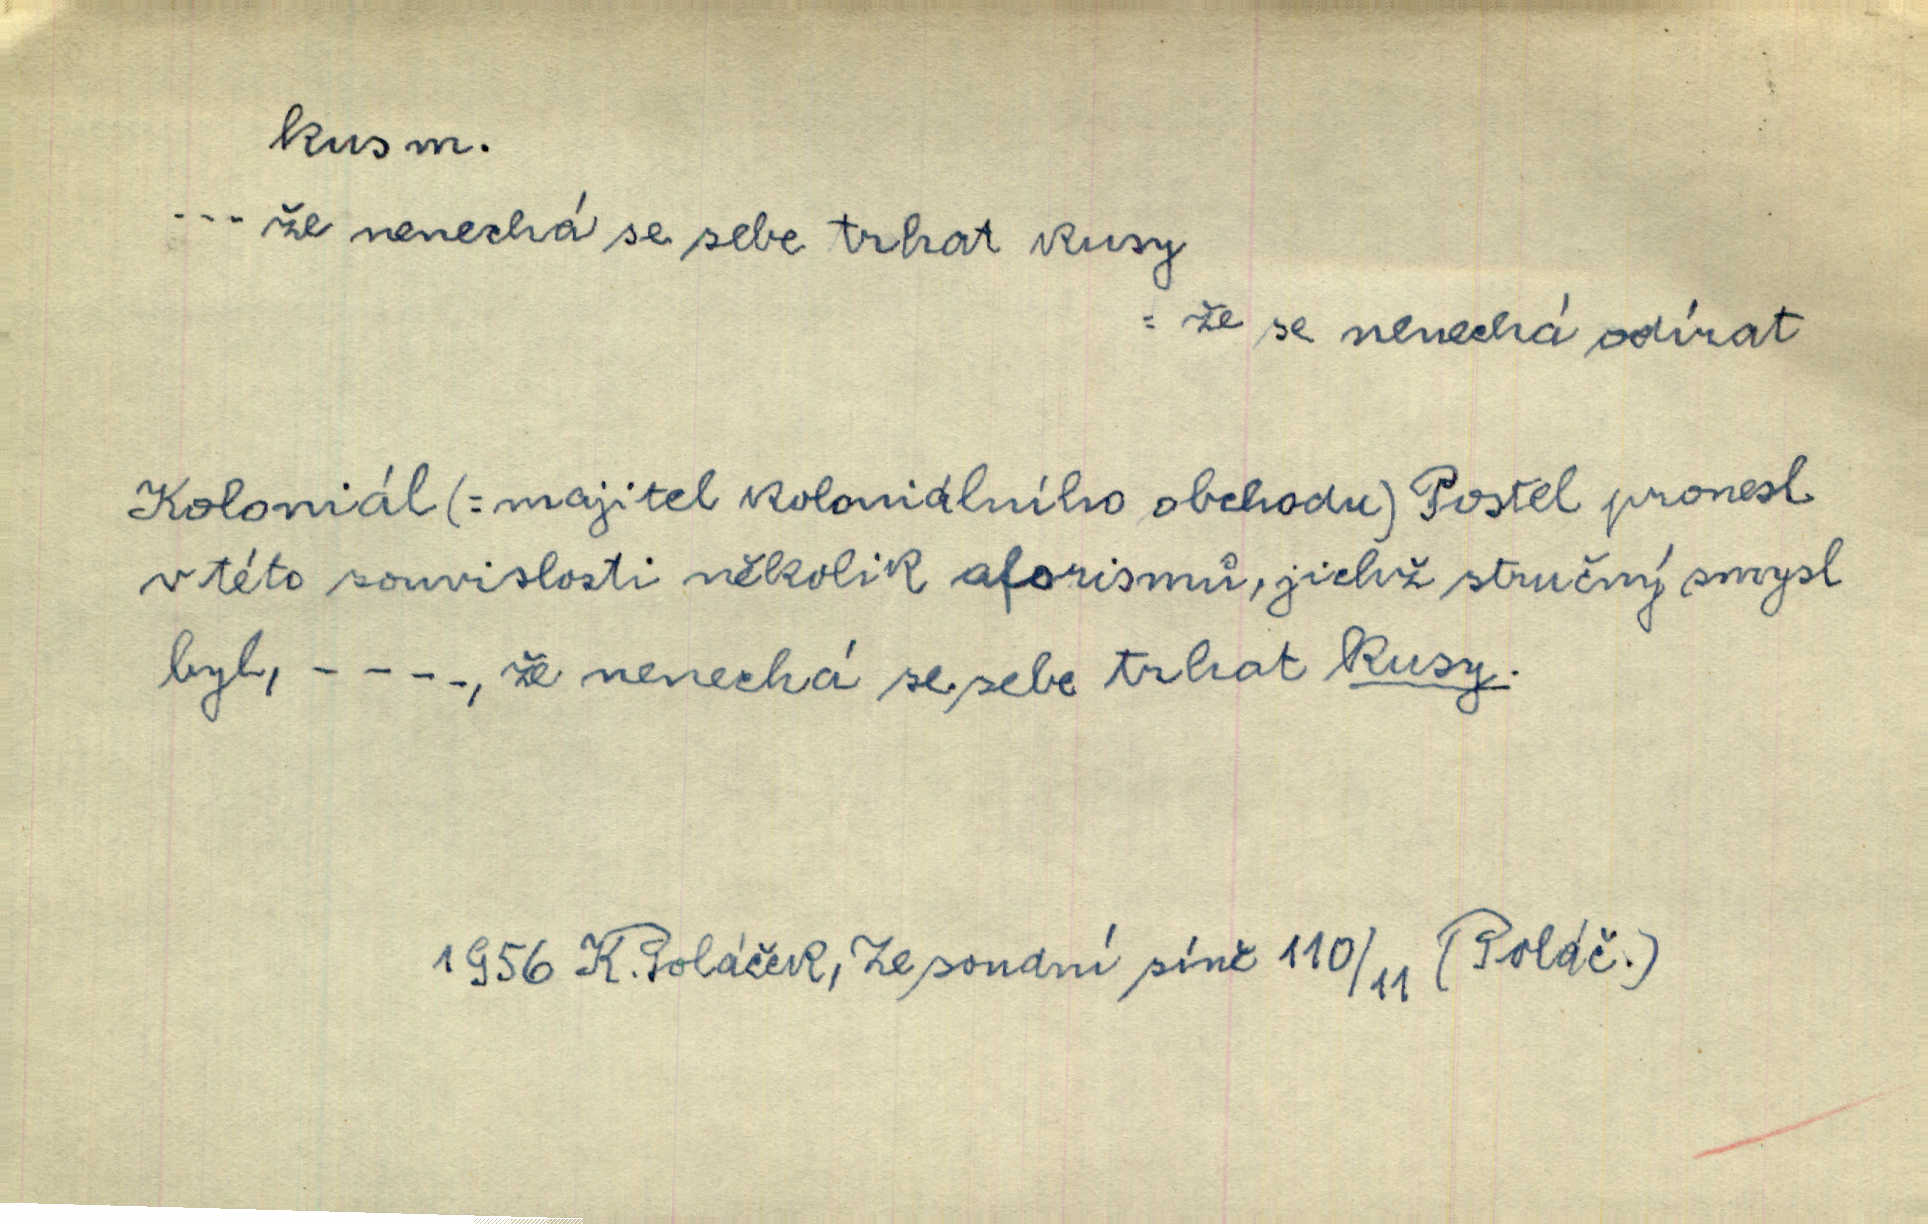 kus m.
--- že nenechá se sebe trhat kusy
= že se nenechá odírat
Koloniál (= majitel koloniálního obchodu) Postel pronesl
v této souvislosti několik aforismů, jichž stručný smysl
byl, - - - - -, že nenechá se sebe trhat kusy.
1956 K. Poláček, Ze soudní síně 110/11 (Poláč.)